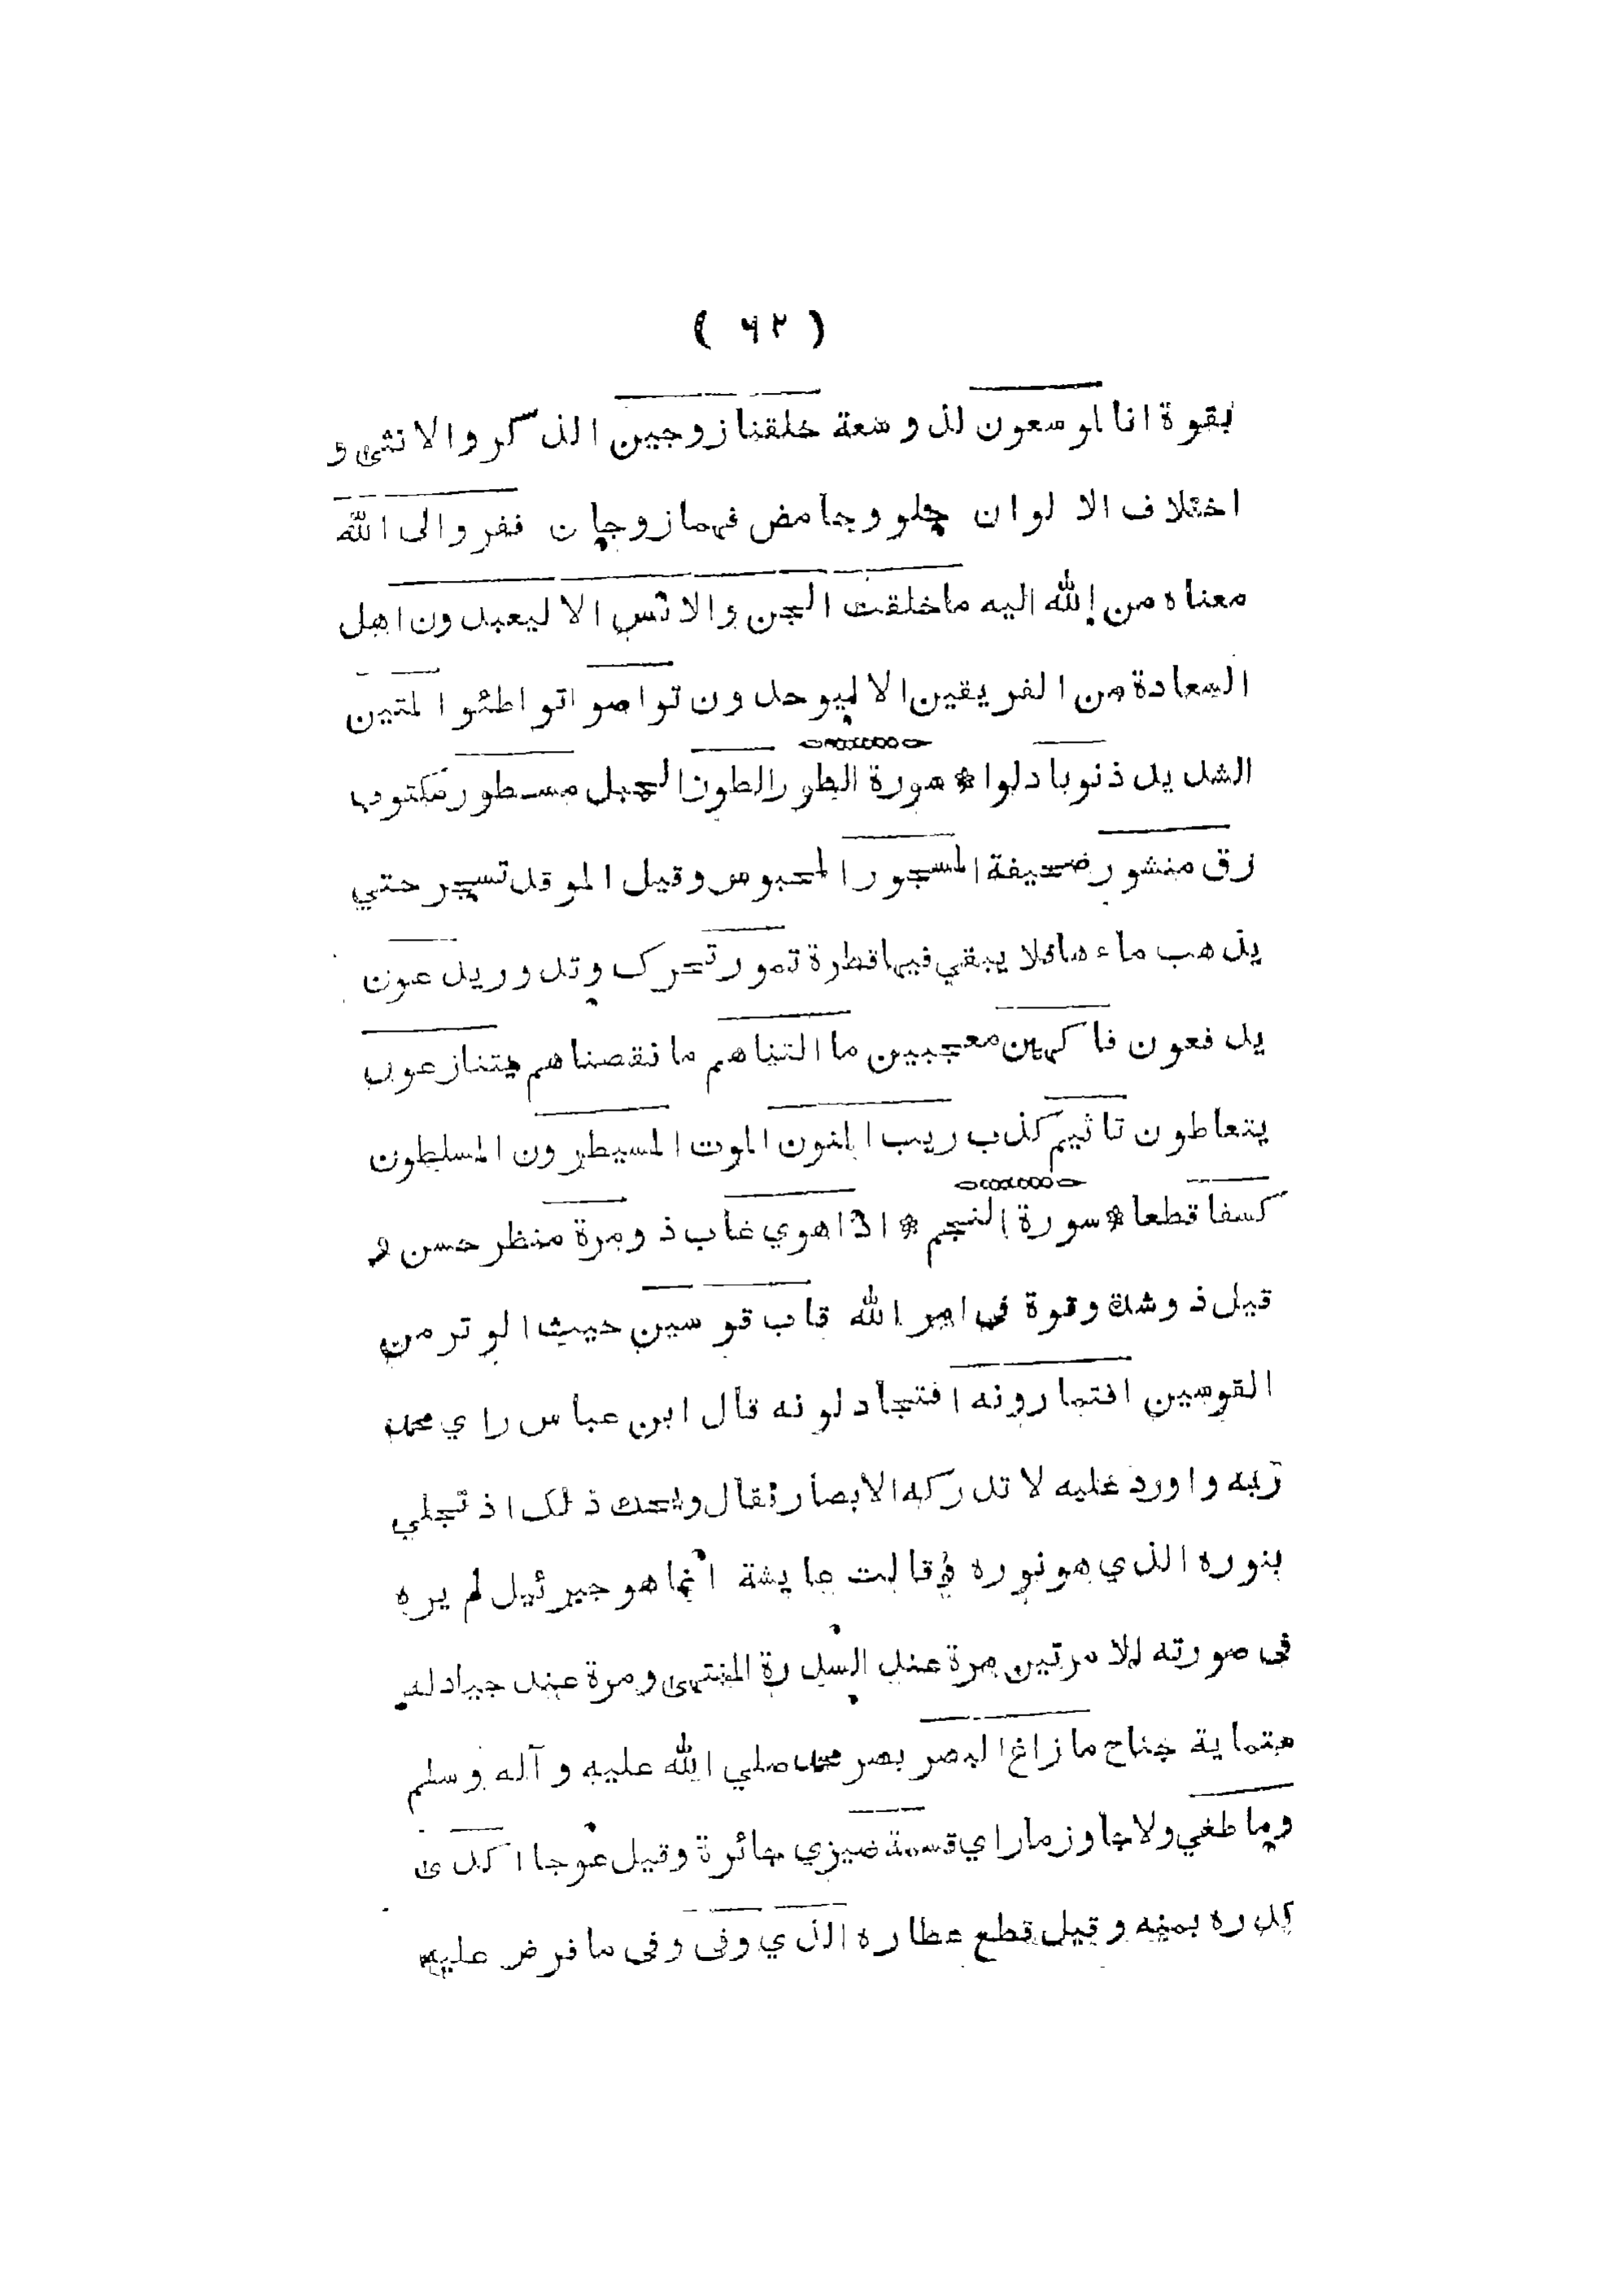 ( ٦٢ )
بقوة انا لموسعون لذو سعة خلقنا زوجين الذكر والانثى و
اختلاف الالوان حلو وحامض فهما زوجان ففروا الى الله
معناه من الله اليه ما خلقت الجن والانس الا ليعبدون اهل
السعادة من الفريقين الا ليوحدون تواصوا تواطئوا المتين
الشديد ذنوبا دلوا * سورة الطور الطور الجبل مسطور مكتوب
رق منشور صحيفة المسجور المحبوس وقيل الموقد تسجر حتي
يذهب ماءها فلا يبقي فيها قطرة تمور تحرك وتدور يدعون
يدفعون فاكهين معجبين ما التناهم ما نقصناهم يتنازعون
يتعاطون تاثيم كذب ريب المنون الموت المسيطرون المسلطون
كسفا قطعا * سورة النجم * اذا هوي غاب ذو مرة منظر حسن و
قيل ذو شدة وقوة فى امر الله قاب قوسين حيث الوتر من
القوسين افتمارونه افتجادلونه قال ابن عباس راي محمد
ربه واورد عليه لا تدركه الابصار فقال ويحك ذلك اذ تجلي
بنوره الذي هو نوره وقالت عايشة انما هو جبرئيل لم يره
فى صورته الا مرتين مرة عند السدرة المنتهى ومرة عند جياد له
ستماية جناح ما زاغ البصر بصر محمد صلي الله عليه وآله وسلم
وما طغي ولا جاوز ما راي قسمة ضيزي جائرة وقيل عوجا اكدى
كدره بمنه وقيل قطع عطاره الذي وفى وفى ما فرض عليه